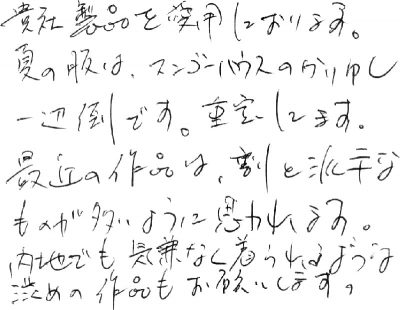 貴社製品を愛用しております。
夏の服は、マンゴーハウスのかりゆし
一辺倒です。重宝してます。
最近の作品は、割と派手な
ものが多いように思われます。
内地でも気兼なく着られるような
渋めの作品もお願いします。